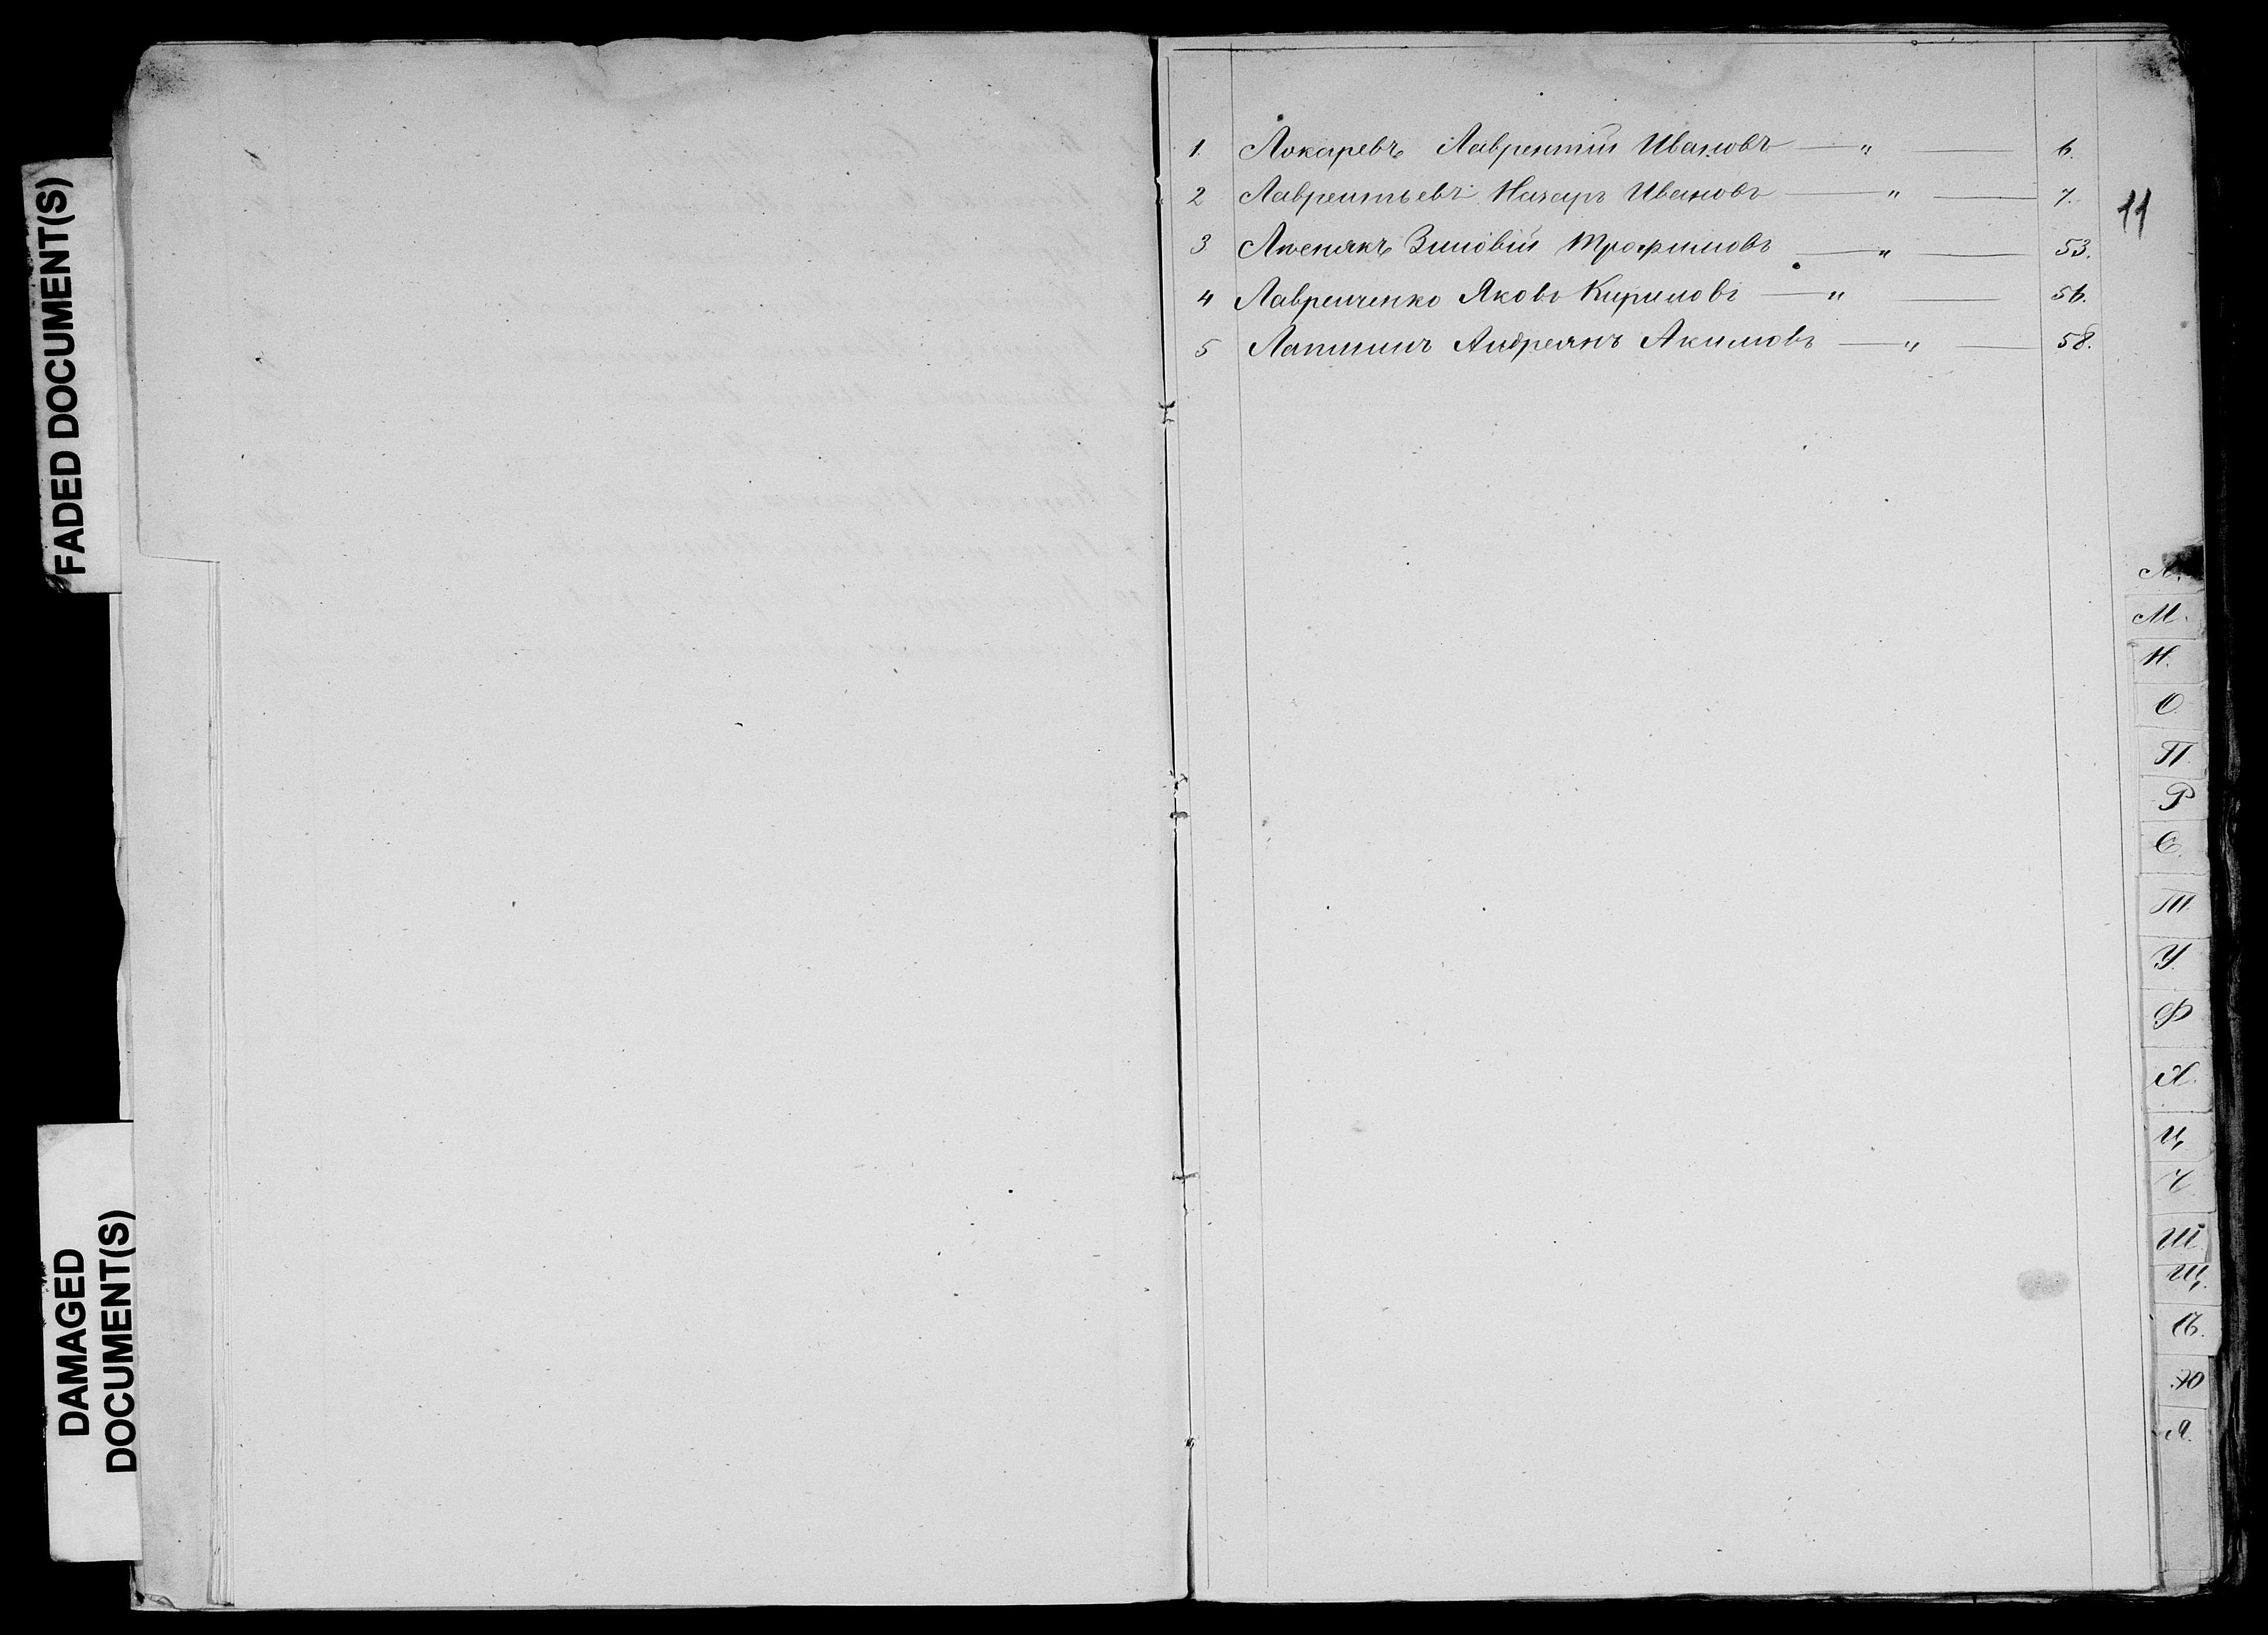 FADED DOCUMENT(S)
DAMAGED
DOCUMENT(S)
1. Локаревъ Лаврентій Ивановъ — " — 6.
2 Лаврентьевъ Назаръ Ивановъ — " — 7.
11
3 Зиновій Трофимовъ — " — 53.
4 Лавренченко Яковъ Кириловъ — " — 56.
5 Лапшинъ Андреянъ Акимовъ — " — 58.
Л.
М.
Н.
О.
П.
Р
С.
Т
У.
Ф
Х.
Ц
Ч
Ш
Щ.
Ю
Я.